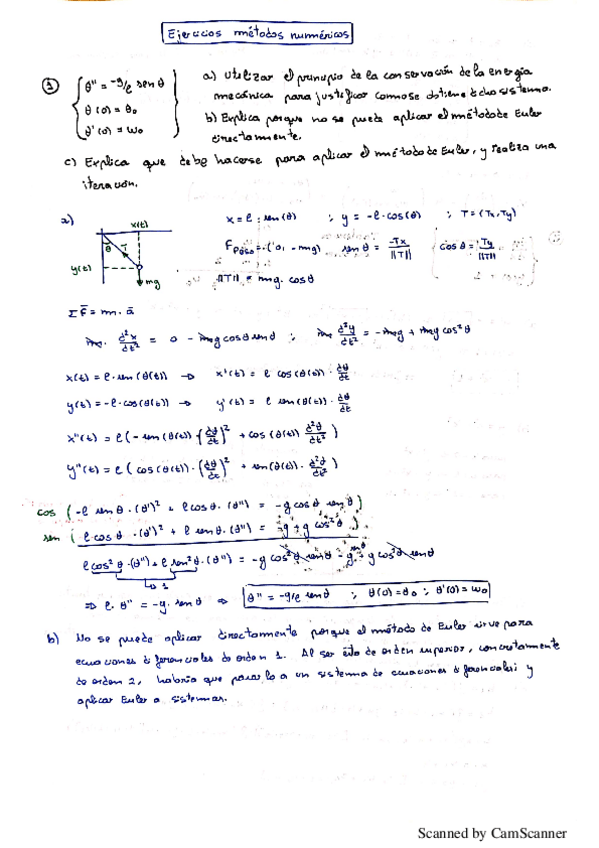 Ejercicios métodos numéricos
① { θ'' = -g/ℓ sen θ
θ(0) = θ₀
θ'(0) = ω₀ }
a) Utilizar el principio de la conservación de la energía
mecánica para justificar como se obtiene dicho sistema.
b) Explica porque no se puede aplicar el método de Euler
directamente.
c) Explica que debe hacerse para aplicar el método de Euler, y realiza una
iteración.
a) x(t) y(t) θ T mg
x = ℓ · sen(θ) ; y = -ℓ · cos(θ) ; T = (Tx, Ty)
F peso = (0, -mg) sen θ = -Tx/||T|| cos θ = Ty/||T||
||T|| = mg · cos θ
Σ F̄ = m · ā
m · d²x/dt² = 0 - mg cos θ sen θ ; m d²y/dt² = -mg + mg cos² θ
x(t) = ℓ · sen(θ(t)) → x'(t) = ℓ cos(θ(t)) · dθ/dt
y(t) = -ℓ · cos(θ(t)) → y'(t) = ℓ sen(θ(t)) · dθ/dt
x''(t) = ℓ (- sen(θ(t)) (dθ/dt)² + cos(θ(t)) d²θ/dt²)
y''(t) = ℓ (cos(θ(t)) · (dθ/dt)² + sen(θ(t)) · d²θ/dt²)
cos (-ℓ sen θ · (θ')² + ℓ cos θ · (θ'') = -g cos θ sen θ)
sen (ℓ cos θ · (θ')² + ℓ sen θ · (θ'') = -g + g cos² θ)
ℓ cos² θ · (θ'') + ℓ sen² θ · (θ'') = -g cos² θ sen θ - g sen θ + g cos² θ sen θ
1
⇒ ℓ · θ'' = -g · sen θ ⇒ θ'' = -g/ℓ sen θ ; θ(0) = θ₀ ; θ'(0) = ω₀
b) No se puede aplicar directamente porque el método de Euler sirve para
ecuaciones diferenciales de orden 1. Al ser ésto de orden superior, concretamente
de orden 2, habría que pasarlo a un sistema de ecuaciones diferenciales y
aplicar Euler a sistemas.
Scanned by CamScanner